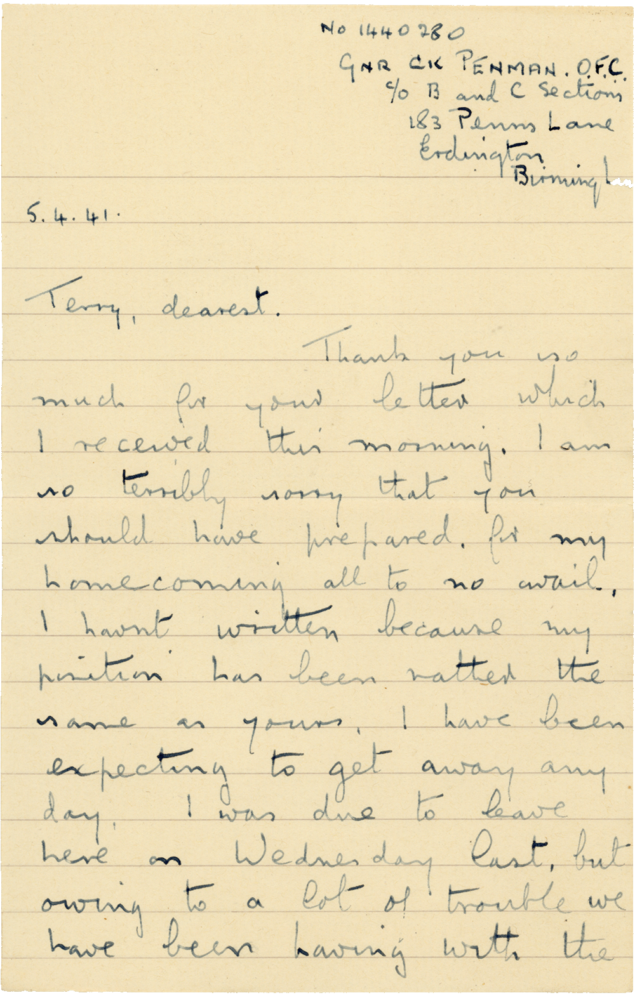 No 1440280
GNR CK PENMAN. O.F.C.
c/o B and C Sections
183 Penns Lane
Erdington
Birmingh
5.4.41.
Terry, dearest.
Thank you so
much for your letter which
I received this morning. I am
so terribly sorry that you
should have prepared. for my
homecoming all to no avail,
I havnt written because my
position has been rather the
same as yours. I have been
expecting to get away any
day. I was due to leave
here on Wednesday last, but
owing to a lot of trouble we
have been having with the